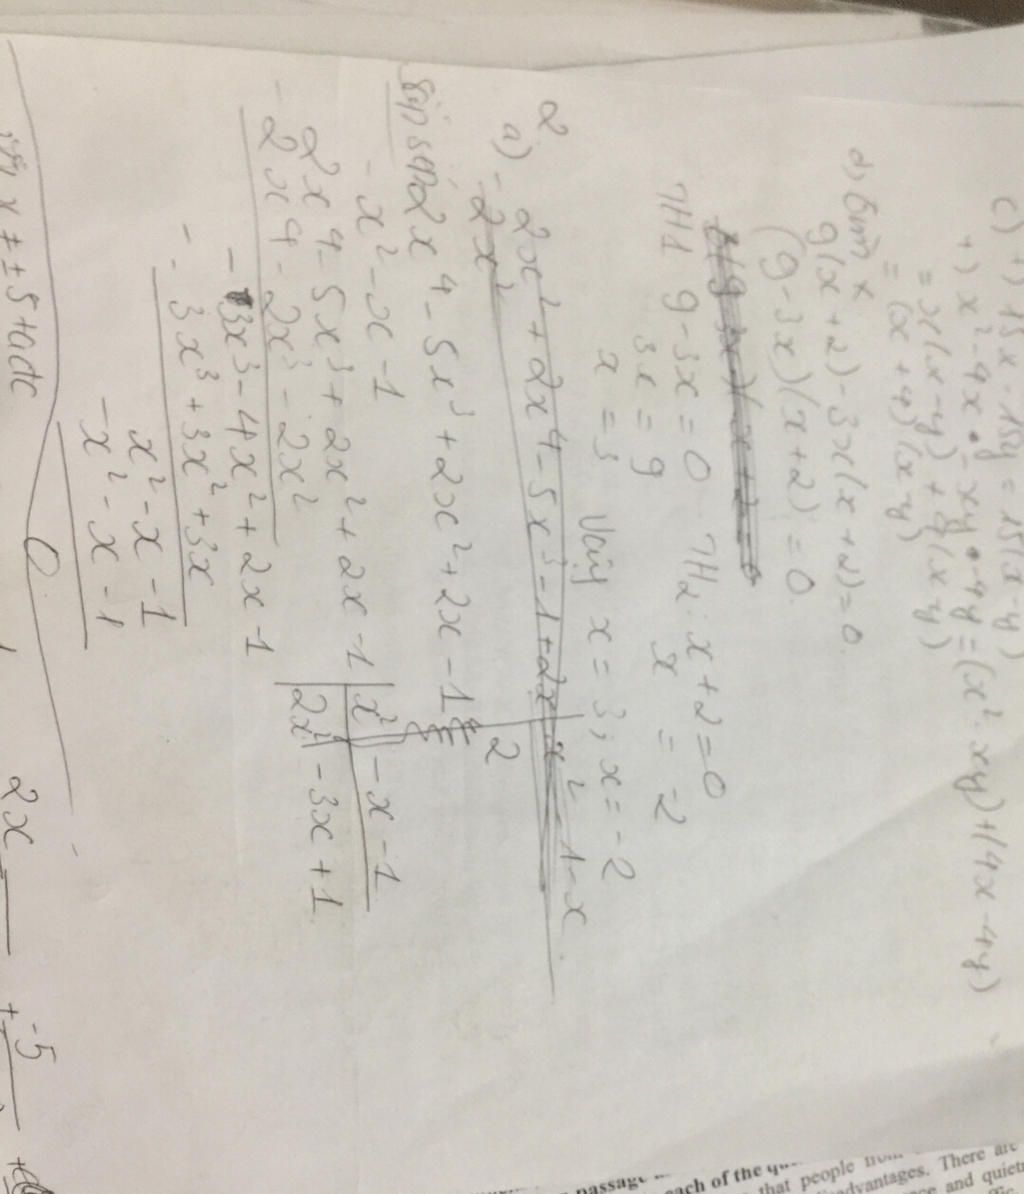 c) +) 15x - 15y = 15(x-y)
+) x² - 4x - xy + 4y = (x² - xy) + (4x - 4y)
= x(x-y) + 4(x-y)
= (x+4)(x-y)
d) Tìm x
9(x+2) - 3x(x+2) = 0
(9-3x)(x+2) = 0
TH1 9-3x = 0 TH2: x+2 = 0
3x = 9 x = -2
x = 3 Vậy x = 3; x = -2
2
a) 2x² + 2x⁴ - 5x³ - 1 + 2x x² - 1 - x
-2x²
2
Sắp xếp 2x⁴ - 5x³ + 2x² + 2x - 1
- x² - x - 1
2x⁴ - 5x³ + 2x² + 2x - 1 x² - x - 1
- 2x⁴ - 2x³ - 2x² 2x² - 3x + 1
- 3x³ - 4x² + 2x - 1
- 3x³ + 3x² + 3x
x² - x - 1
- x² - x - 1
0
x ≠ ± 5
2x
-5
passage
each of the
that people from
advantages. There are
and quiet